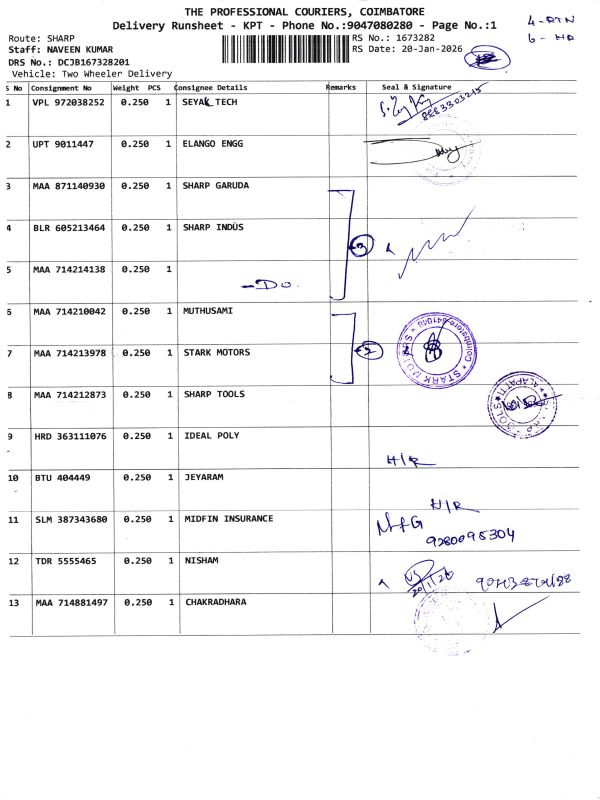 THE PROFESSIONAL COURIERS, COIMBATORE
Delivery Runsheet - KPT - Phone No.:9047080280 - Page No.:1
4 - RTN
6 - NR
Route: SHARP
RS No.: 1673282
Staff: NAVEEN KUMAR
RS Date: 20-Jan-2026
DRS No.: DCJB167328201
Vehicle: Two Wheeler Delivery
S No Consignment No Weight PCS Consignee Details Remarks Seal & Signature
1 VPL 972038252 0.250 1 SEYAL TECH
2 UPT 9011447 0.250 1 ELANGO ENGG
3 MAA 871140930 0.250 1 SHARP GARUDA
4 BLR 605213464 0.250 1 SHARP INDUS
3
5 MAA 714214138 0.250 1
- Do.
6 MAA 714210042 0.250 1 MUTHUSAMI
7 MAA 714213978 0.250 1 STARK MOTORS
2
STARK MOTORS Coimbatore-641048
8 MAA 714212873 0.250 1 SHARP TOOLS
9 HRD 363111076 0.250 1 IDEAL POLY
N/R
10 BTU 404449 0.250 1 JEYARAM
N/R
11 SLM 387343680 0.250 1 MIDFIN INSURANCE
9280095304
12 TDR 5555465 0.250 1 NISHAM
20/1/26
13 MAA 714881497 0.250 1 CHAKRADHARA